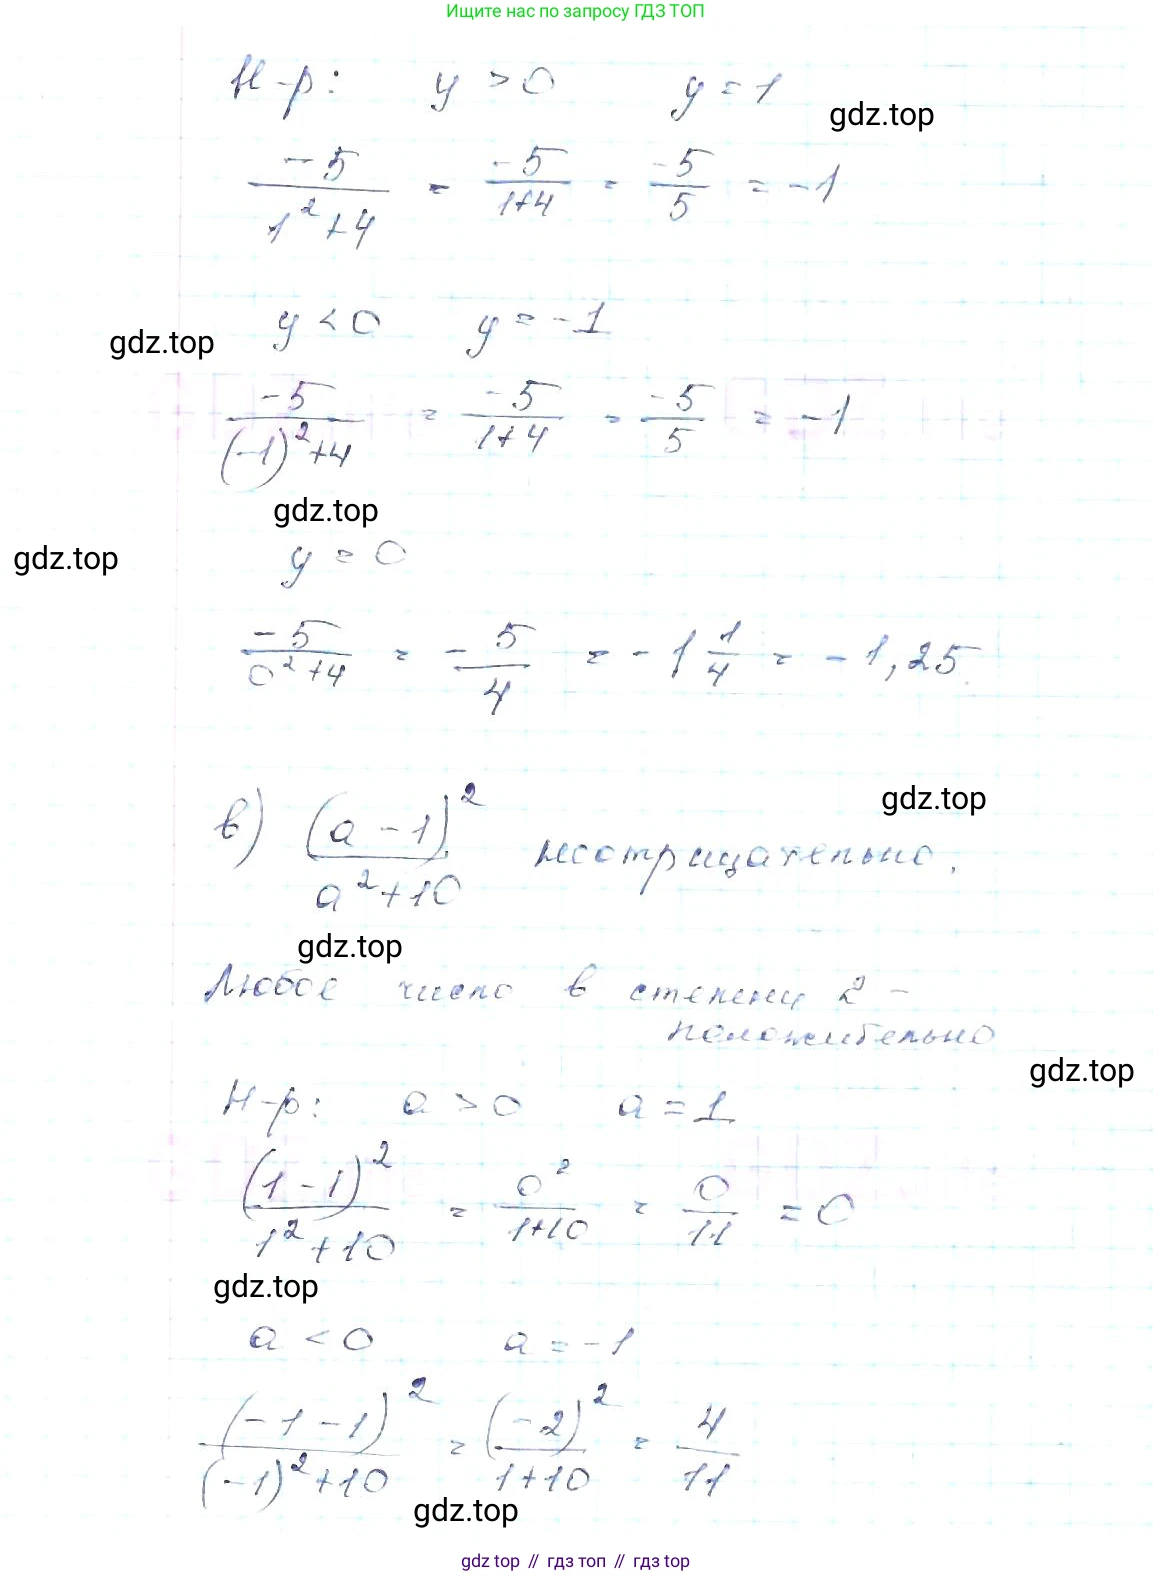 Ищите нас по запросу ГДЗ ТОП
Н-р: y > 0 y = 1
gdz.top
-5/(1²+4) = -5/(1+4) = -5/5 = -1
y < 0 y = -1
gdz.top
-5/((-1)²+4) = -5/(1+4) = -5/5 = -1
gdz.top
y = 0
gdz.top
-5/(0²+4) = -5/4 = -1 1/4 = -1,25
gdz.top
в) (a-1)²/(a²+10) неотрицательно.
gdz.top
Любое число в степени 2 -
положительно
gdz.top
Н-р: a > 0 a = 1
(1-1)²/(1²+10) = 0²/(1+10) = 0/11 = 0
gdz.top
a < 0 a = -1
(-1-1)²/((-1)²+10) = (-2)²/(1+10) = 4/11
gdz.top
gdz top // гдз топ // gdz top